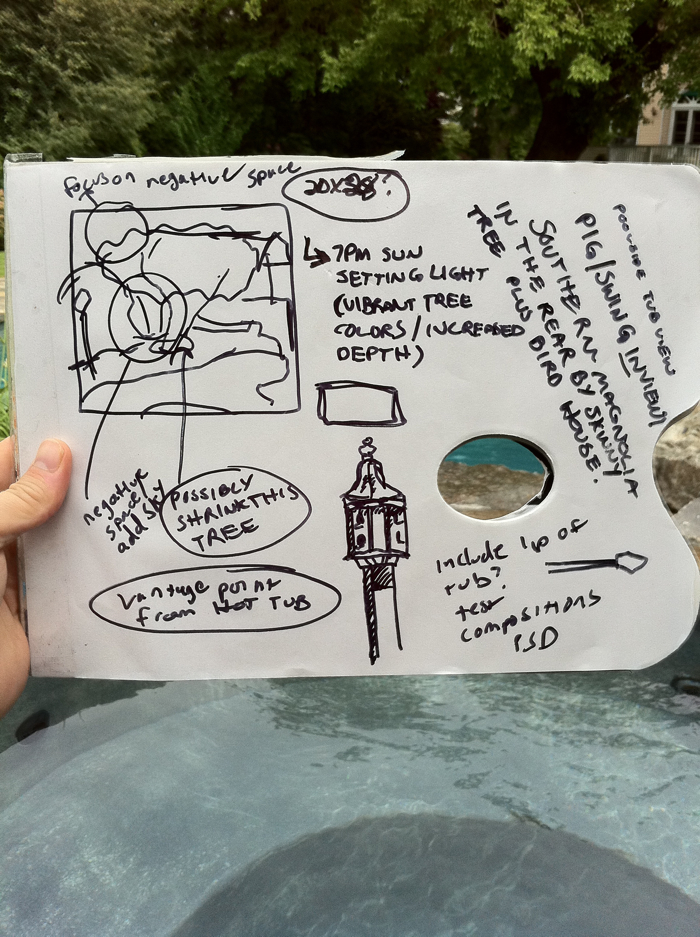 focus on negative space
7PM SUN
SETTING LIGHT
(VIBRANT TREE
COLORS / INCREASED
DEPTH)
POOLSIDE TUB VIEW
PIG/SWING IN VIEW!
SOUTHERN MAGNOLIA
IN THE REAR BY SKINNY
TREE PLUS BIRD HOUSE.
negative
space/
add sky
POSSIBLY
SHRINK THIS
TREE
Vantage point
from HOT TUB
include lip of
tub?
test
compositions
PSD